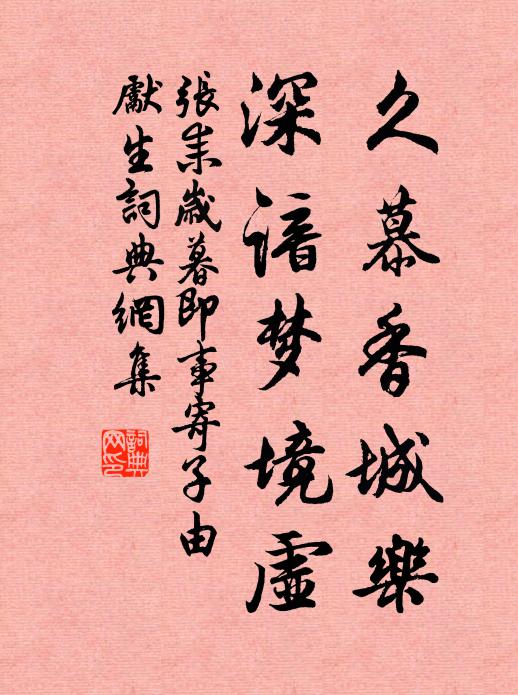 久慕香城樂
深諳梦境虛
張耒歲暮即事寄子由
獻生詞典網集
詞典網印